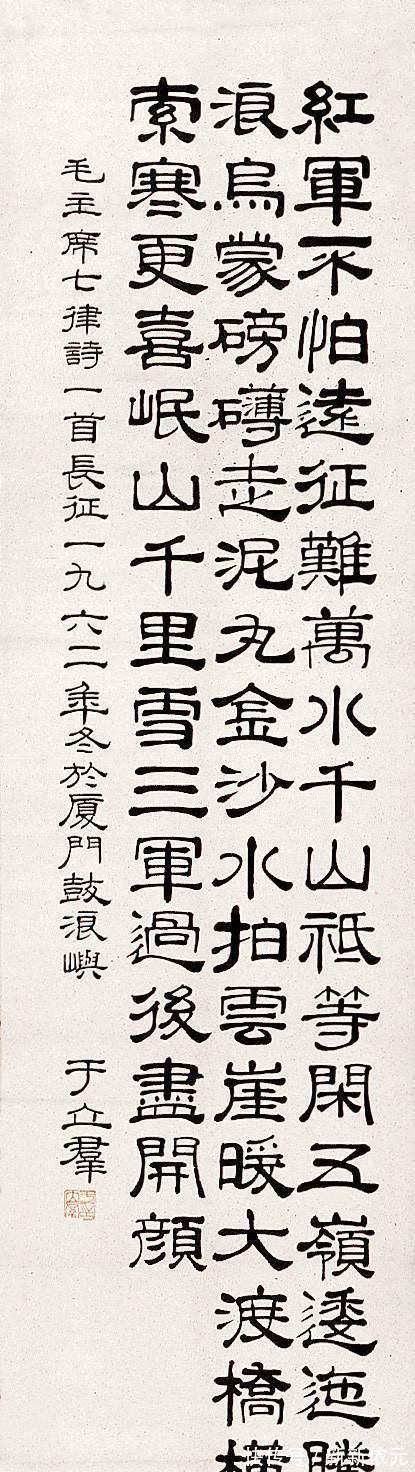 紅軍不怕遠征難萬水千山祗等閑五嶺逶迤騰
浪烏蒙磅礴走泥丸金沙水拍雲崖暖大渡橋橫
索寒更喜岷山千里雪三軍過後盡開顏
毛主席七律詩一首長征一九六二年冬於厦門鼓浪嶼 于立羣